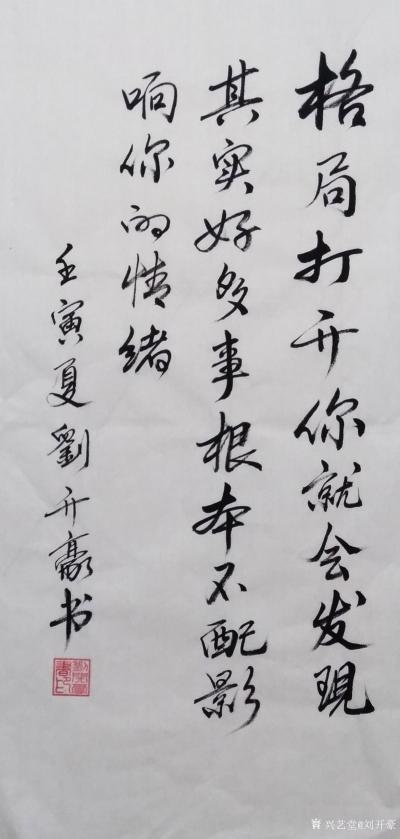 格局打开你就会发现
其实好多事根本不配影
响你的情绪
壬寅夏劉开豪书
兴艺堂@刘开豪